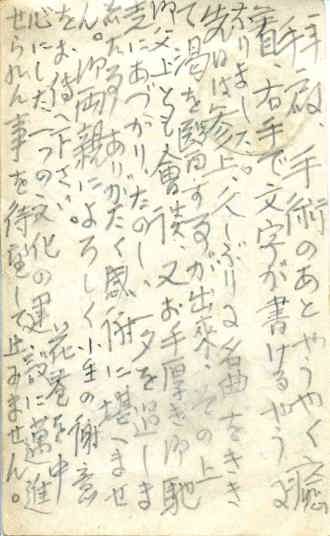 拝啓、手術のあとやうやく癒
着、右手で文字が書けるやうに
なりました。
先日は参上、久しぶりに名曲をきき
て渇を醫す事が出来、その上
御父上とも會談、又お手厚き御馳
走にあづかりたのしい一夕を過しま
したる事ありがたく感謝に堪へませ
ん。御両親によろしく小生の謝意
をお傳へ下さい。花巻を中
心にした一つの文化の建設に邁進
せられん事を待望して止みません。